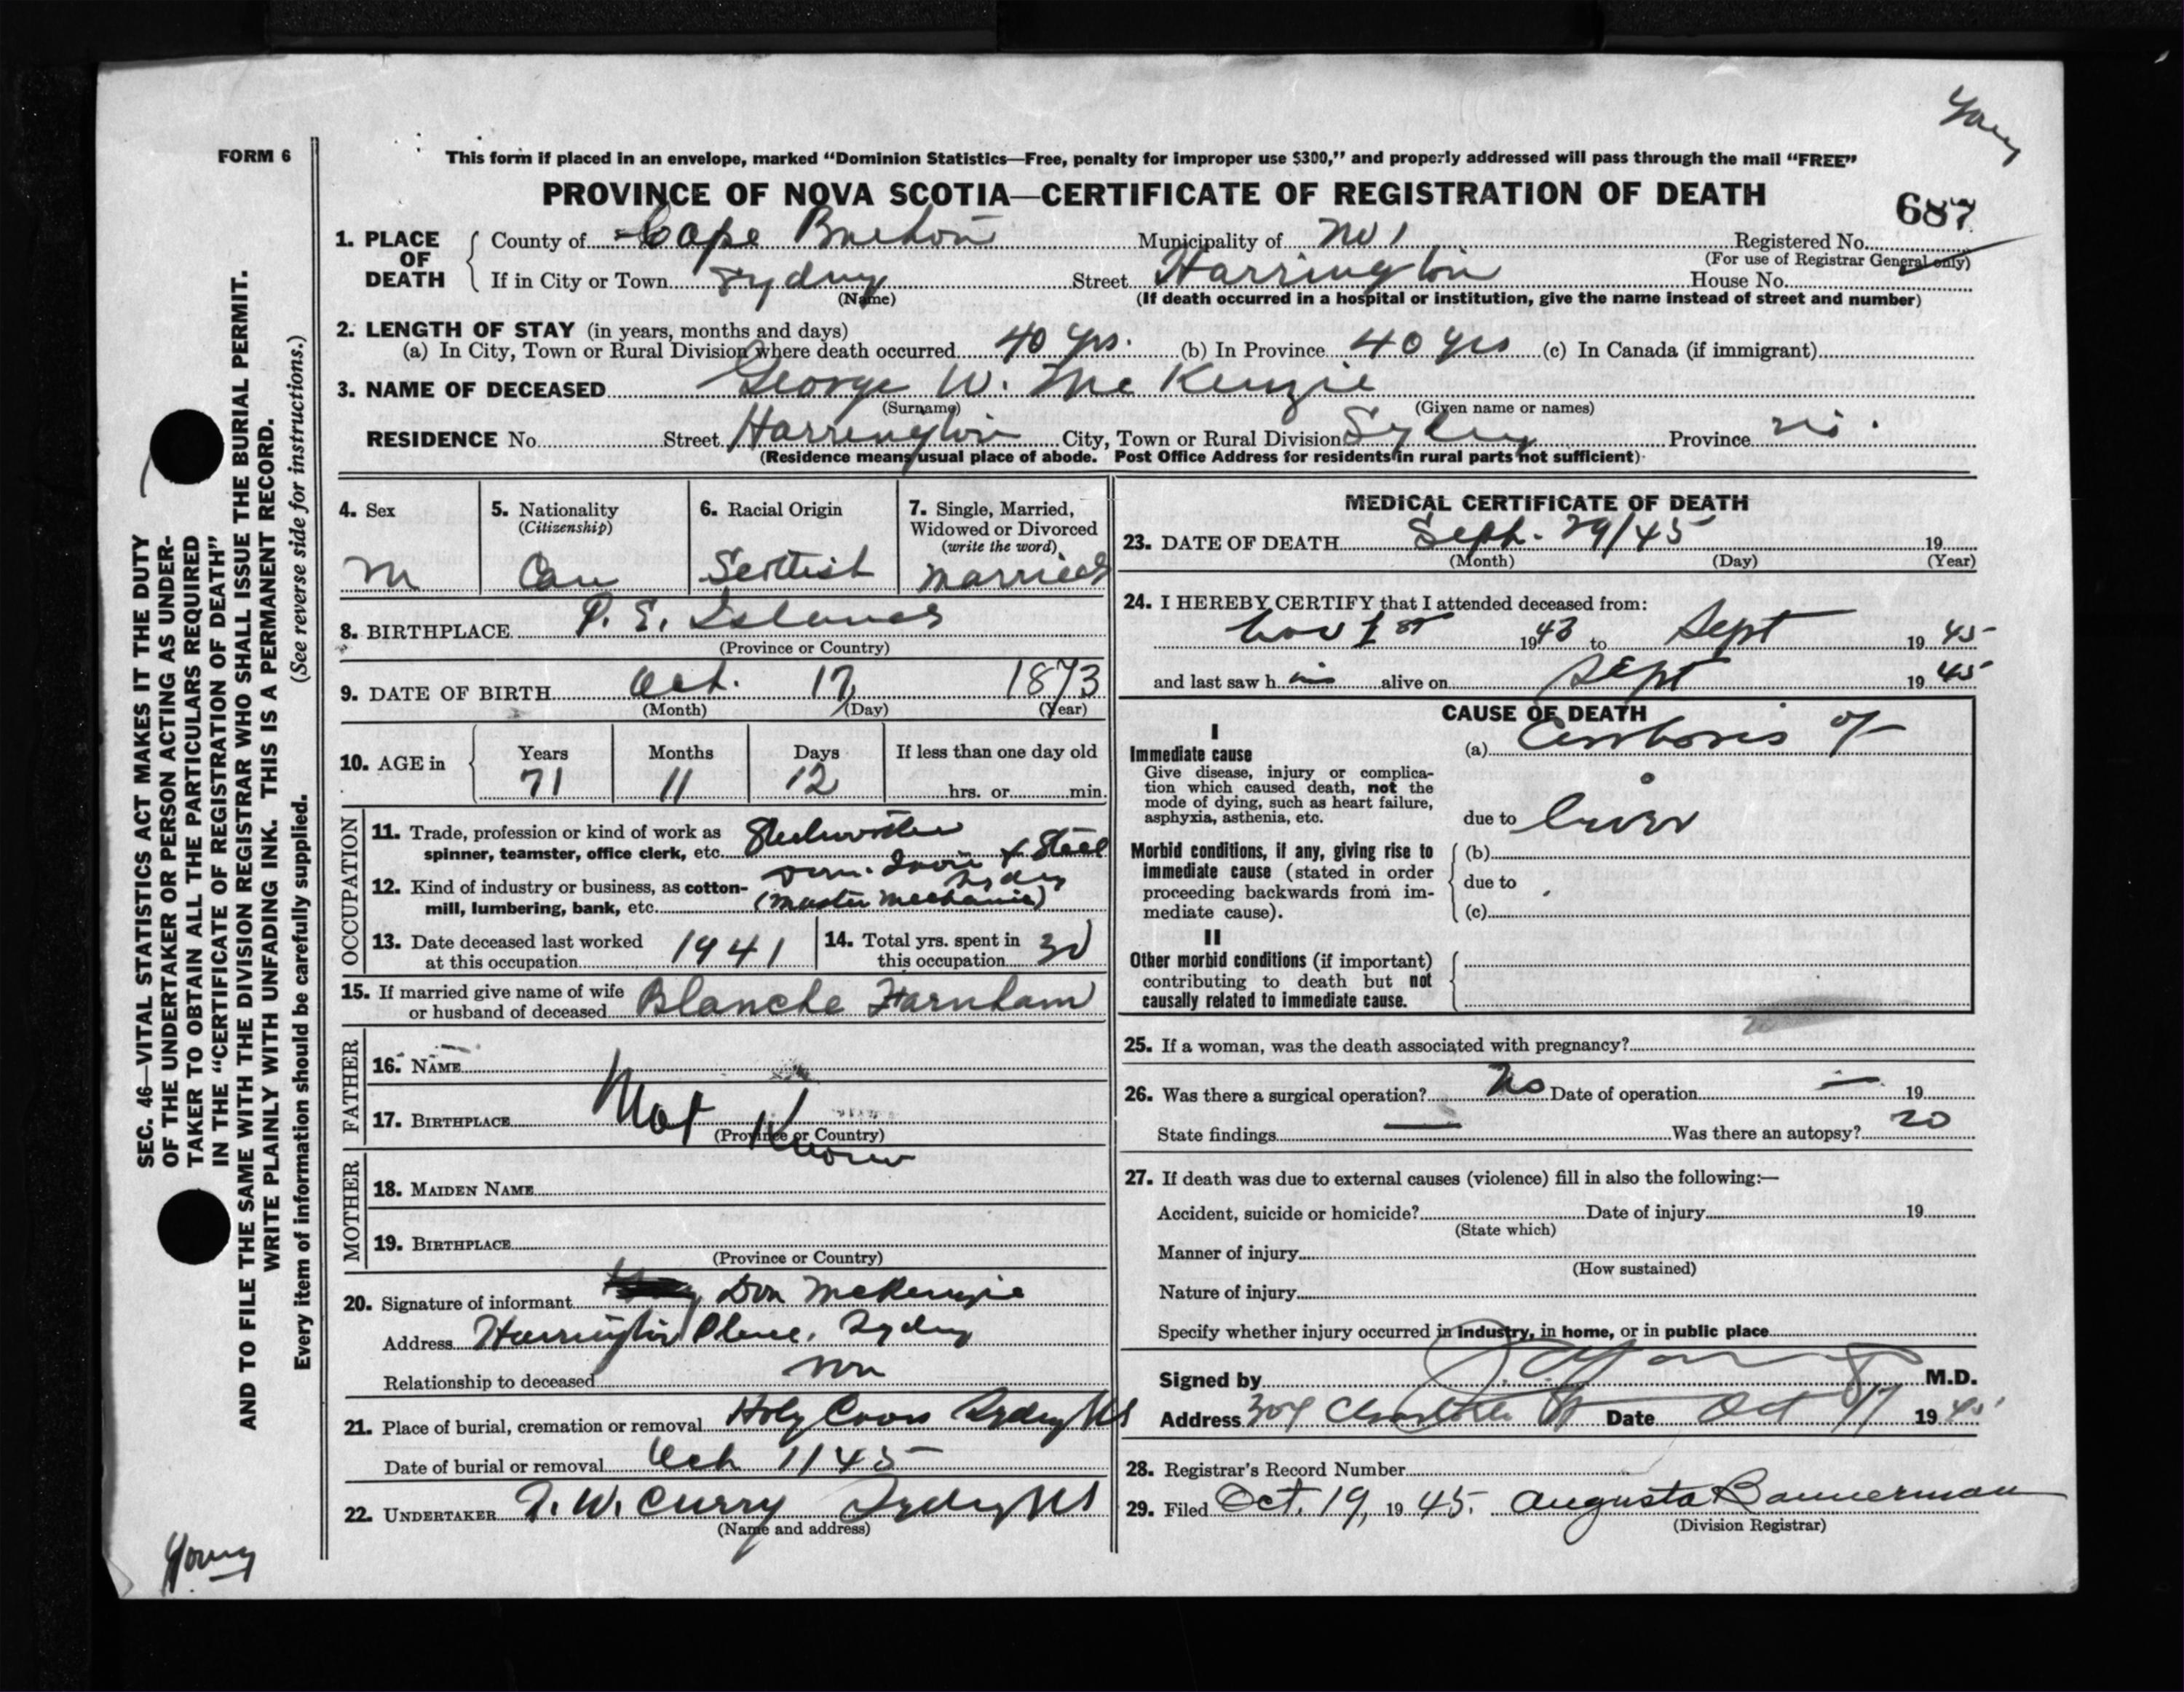 Young
FORM 6
This form if placed in an envelope, marked “Dominion Statistics—Free, penalty for improper use $300,” and properly addressed will pass through the mail “FREE”
PROVINCE OF NOVA SCOTIA—CERTIFICATE OF REGISTRATION OF DEATH
687
1. PLACE OF DEATH
County of Cape Breton Municipality of No 1 Registered No.
(For use of Registrar General only)
If in City or Town Sydney Street Harrington House No.
(Name) (If death occurred in a hospital or institution, give the name instead of street and number)
2. LENGTH OF STAY (in years, months and days)
(a) In City, Town or Rural Division where death occurred 40 yrs. (b) In Province 40 yrs (c) In Canada (if immigrant)
3. NAME OF DECEASED George W. McKenzie
(Surname) (Given name or names)
RESIDENCE No. Street Harrington City, Town or Rural Division Sydney Province
(Residence means usual place of abode. Post Office Address for residents in rural parts not sufficient)
4. Sex
M
5. Nationality
(Citizenship)
Can
6. Racial Origin
Scottish
7. Single, Married,
Widowed or Divorced
(write the word)
Married
8. BIRTHPLACE P. E. Island
(Province or Country)
9. DATE OF BIRTH Oct. 17, 1873
(Month) (Day) (Year)
10. AGE in
Years Months Days If less than one day old
71 11 12 hrs. or min.
OCCUPATION
11. Trade, profession or kind of work as
spinner, teamster, office clerk, etc. Steelworker
Dom. Iron & Steel
Sydney
12. Kind of industry or business, as cotton-
mill, lumbering, bank, etc. (Master Mechanic)
13. Date deceased last worked
at this occupation 1941
14. Total yrs. spent in
this occupation 30
15. If married give name of wife
or husband of deceased Blanche Farnham
FATHER
16. NAME
17. BIRTHPLACE Not Known
(Province or Country)
MOTHER
18. MAIDEN NAME
19. BIRTHPLACE
(Province or Country)
20. Signature of informant Don McKenzie
Address Harrington Place, Sydney
Relationship to deceased son
21. Place of burial, cremation or removal Holy Cross Sydney NS
Date of burial or removal Oct 1/45
22. UNDERTAKER T. W. Curry Sydney NS
(Name and address)
MEDICAL CERTIFICATE OF DEATH
23. DATE OF DEATH Sept. 29/45 19
(Month) (Day) (Year)
24. I HEREBY CERTIFY that I attended deceased from:
Nov 1st 1943 to Sept 1945
and last saw h im alive on Sept 1945
CAUSE OF DEATH
I
Immediate cause
Give disease, injury or complica-
tion which caused death, not the
mode of dying, such as heart failure,
asphyxia, asthenia, etc.
(a) Cirrhosis of
due to liver
Morbid conditions, if any, giving rise to
immediate cause (stated in order
proceeding backwards from im-
mediate cause).
(b)
due to
(c)
II
Other morbid conditions (if important)
contributing to death but not
causally related to immediate cause.
25. If a woman, was the death associated with pregnancy?
26. Was there a surgical operation? No Date of operation — 19
State findings — Was there an autopsy? no
27. If death was due to external causes (violence) fill in also the following:—
Accident, suicide or homicide? Date of injury 19
(State which)
Manner of injury
(How sustained)
Nature of injury
Specify whether injury occurred in industry, in home, or in public place
Signed by M.D.
Address 304 Charlotte St Date Oct 17 1945
28. Registrar's Record Number
29. Filed Oct. 19, 1945. Augusta Bannerman
(Division Registrar)
SEC. 46—VITAL STATISTICS ACT MAKES IT THE DUTY
OF THE UNDERTAKER OR PERSON ACTING AS UNDER-
TAKER TO OBTAIN ALL THE PARTICULARS REQUIRED
IN THE “CERTIFICATE OF REGISTRATION OF DEATH”
AND TO FILE THE SAME WITH THE DIVISION REGISTRAR WHO SHALL ISSUE THE BURIAL PERMIT.
WRITE PLAINLY WITH UNFADING INK. THIS IS A PERMANENT RECORD.
Every item of information should be carefully supplied. (See reverse side for instructions.)
Young